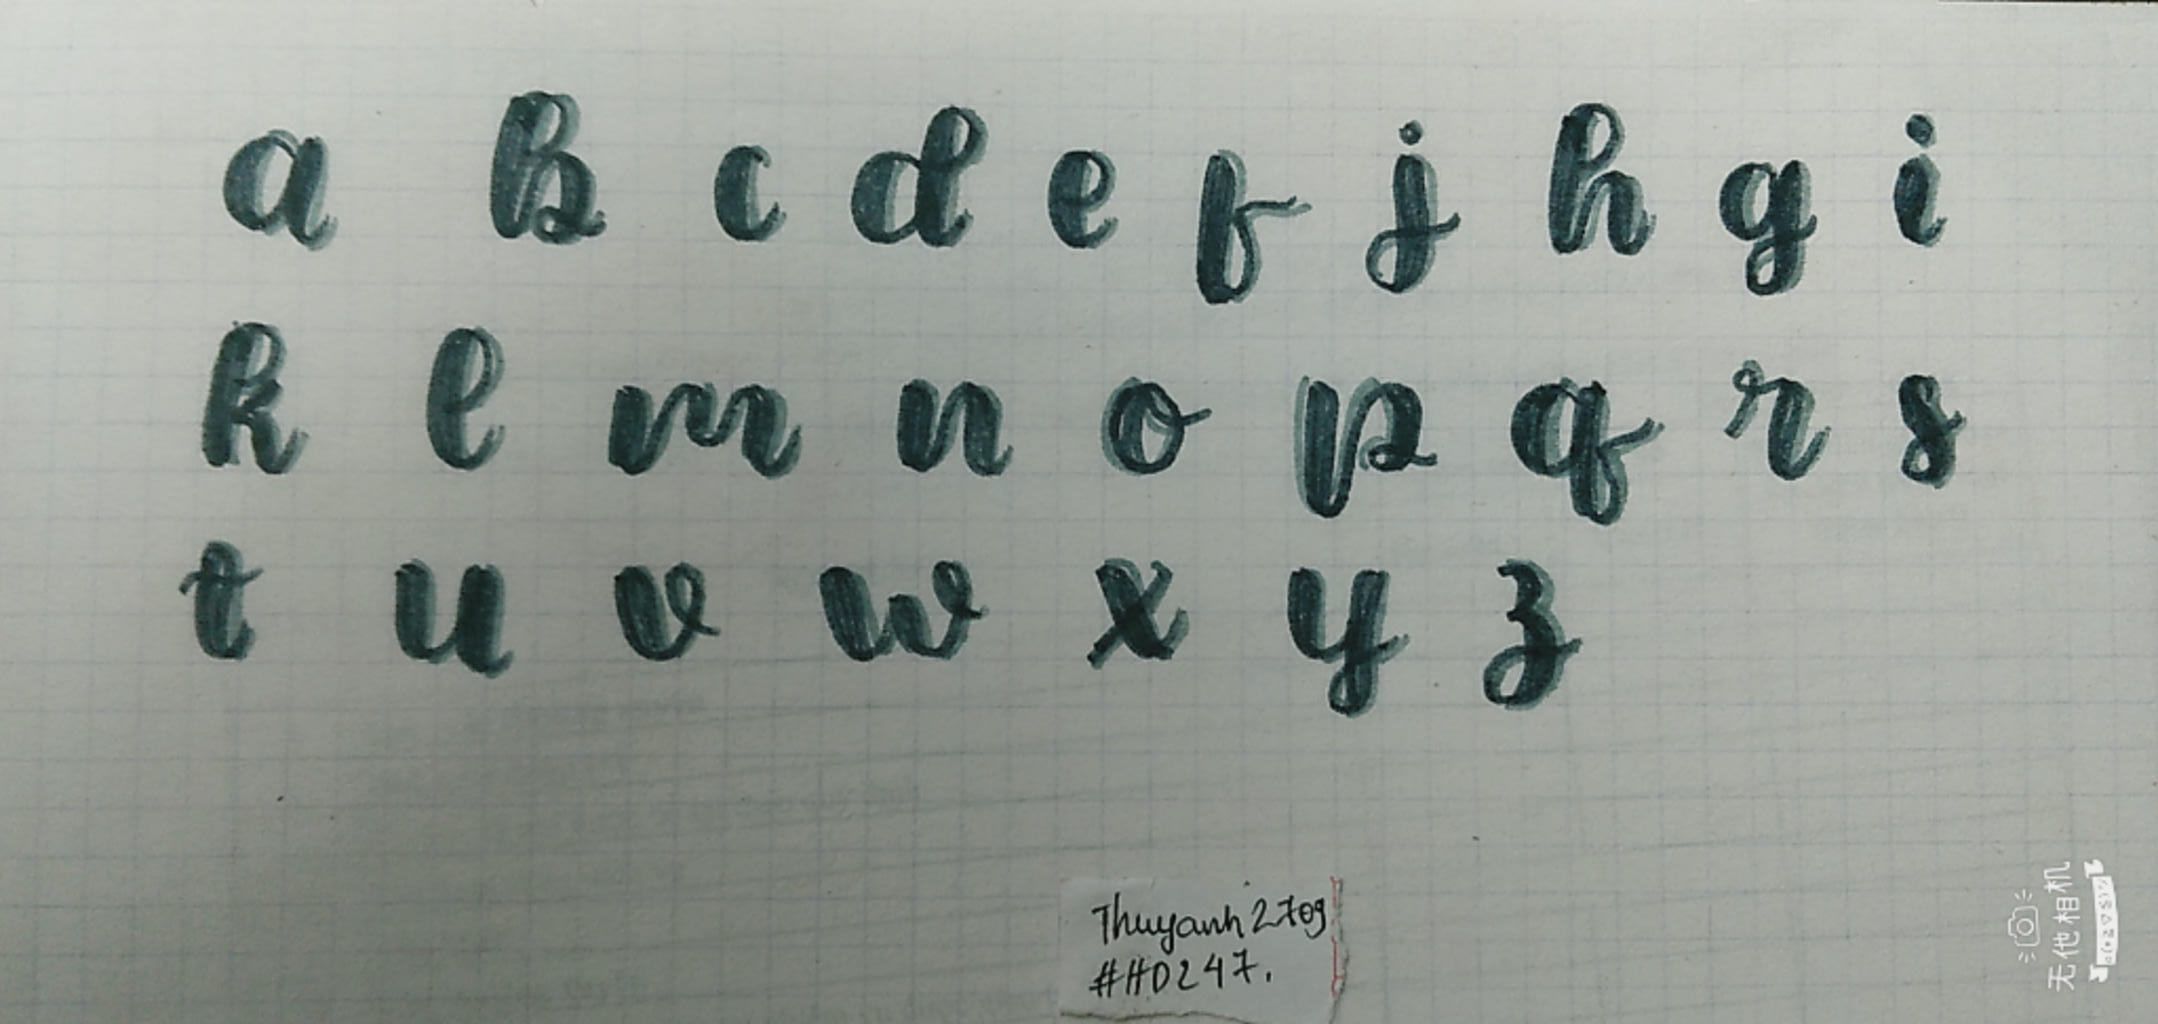 a b c d e f j h g i
k l m n o p q r s
t u v w x y z
Thuyanh2709
#HD247.
无他相机